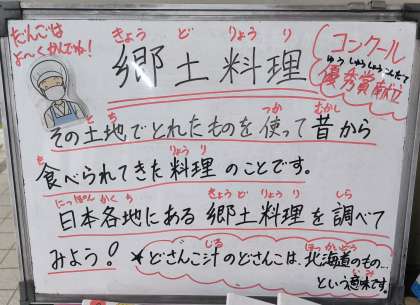 だんごは
よ〜くかんでね!
きょう ど りょう り
郷土料理
コンクール
ゆうしゅうしょうこんだて
優秀賞献立
とち つか むかし
その土地でとれたものを使って昔から
た りょうり
食べられてきた料理のことです。
にっぽんかくち きょうど りょうり しら
日本各地にある郷土料理を調べて
みよう!
じる ほっかいどう
*どさんこ汁のどさんこは、北海道のもの…
いみ
という意味です。